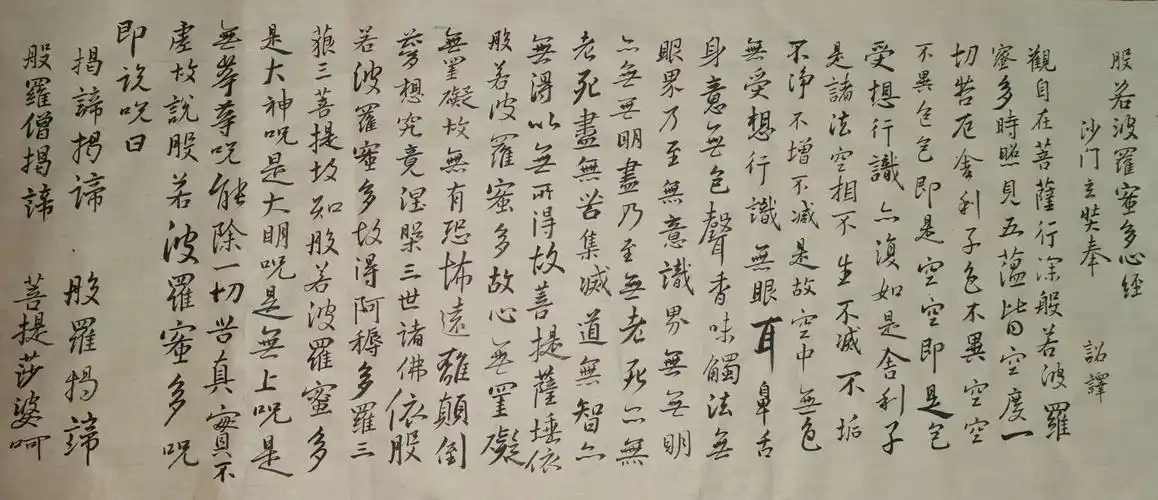 般若波羅蜜多心經
沙門玄奘奉 詔譯
觀自在菩薩行深般若波羅
蜜多時照見五蘊皆空度一
切苦厄舍利子色不異空空
不異色色即是空空即是色
受想行識亦復如是舍利子
是諸法空相不生不滅不垢
不淨不增不減是故空中無色
無受想行識無眼耳鼻舌
身意無色聲香味觸法無
眼界乃至無意識界無無明
亦無無明盡乃至無老死亦無
老死盡無苦集滅道無智亦
無得以無所得故菩提薩埵依
般若波羅蜜多故心無罣礙
無罣礙故無有恐怖遠離顛倒
夢想究竟涅槃三世諸佛依般
若波羅蜜多故得阿耨多羅三
藐三菩提故知般若波羅蜜多
是大神呪是大明呪是無上呪是
無等等呪能除一切苦真實不
虛故說般若波羅蜜多呪
即说呪曰
揭諦揭諦 般羅揭諦
般羅僧揭諦 菩提莎婆呵